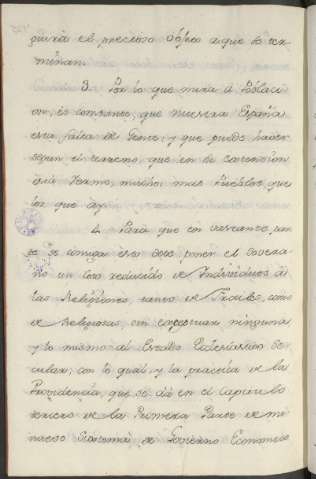 el precioso objeto a que se ter
minan.
3. Por lo que mira a Poblaci
on, es constante, que nuestra España
esta falta de Gente; y que puede haver
segun el terreno, que en su extension
está Yermo, muchos mas Pueblos que
los que ay.
4. Para que en bastante par
te se consiga este deseo, poner el Sovera
no un coto reducido de Individuos à
las Religiones, tanto de Frailes, como
de Religiosas, sin exceptuar ninguna,
y lo mismo al Estado Eclesiastico Se
cular; con lo qual, y la practica de la
Providencia, que se dá en el Capitulo
tercero de la Primera Parte de mi
nuevo Sistema de Govierno Economico